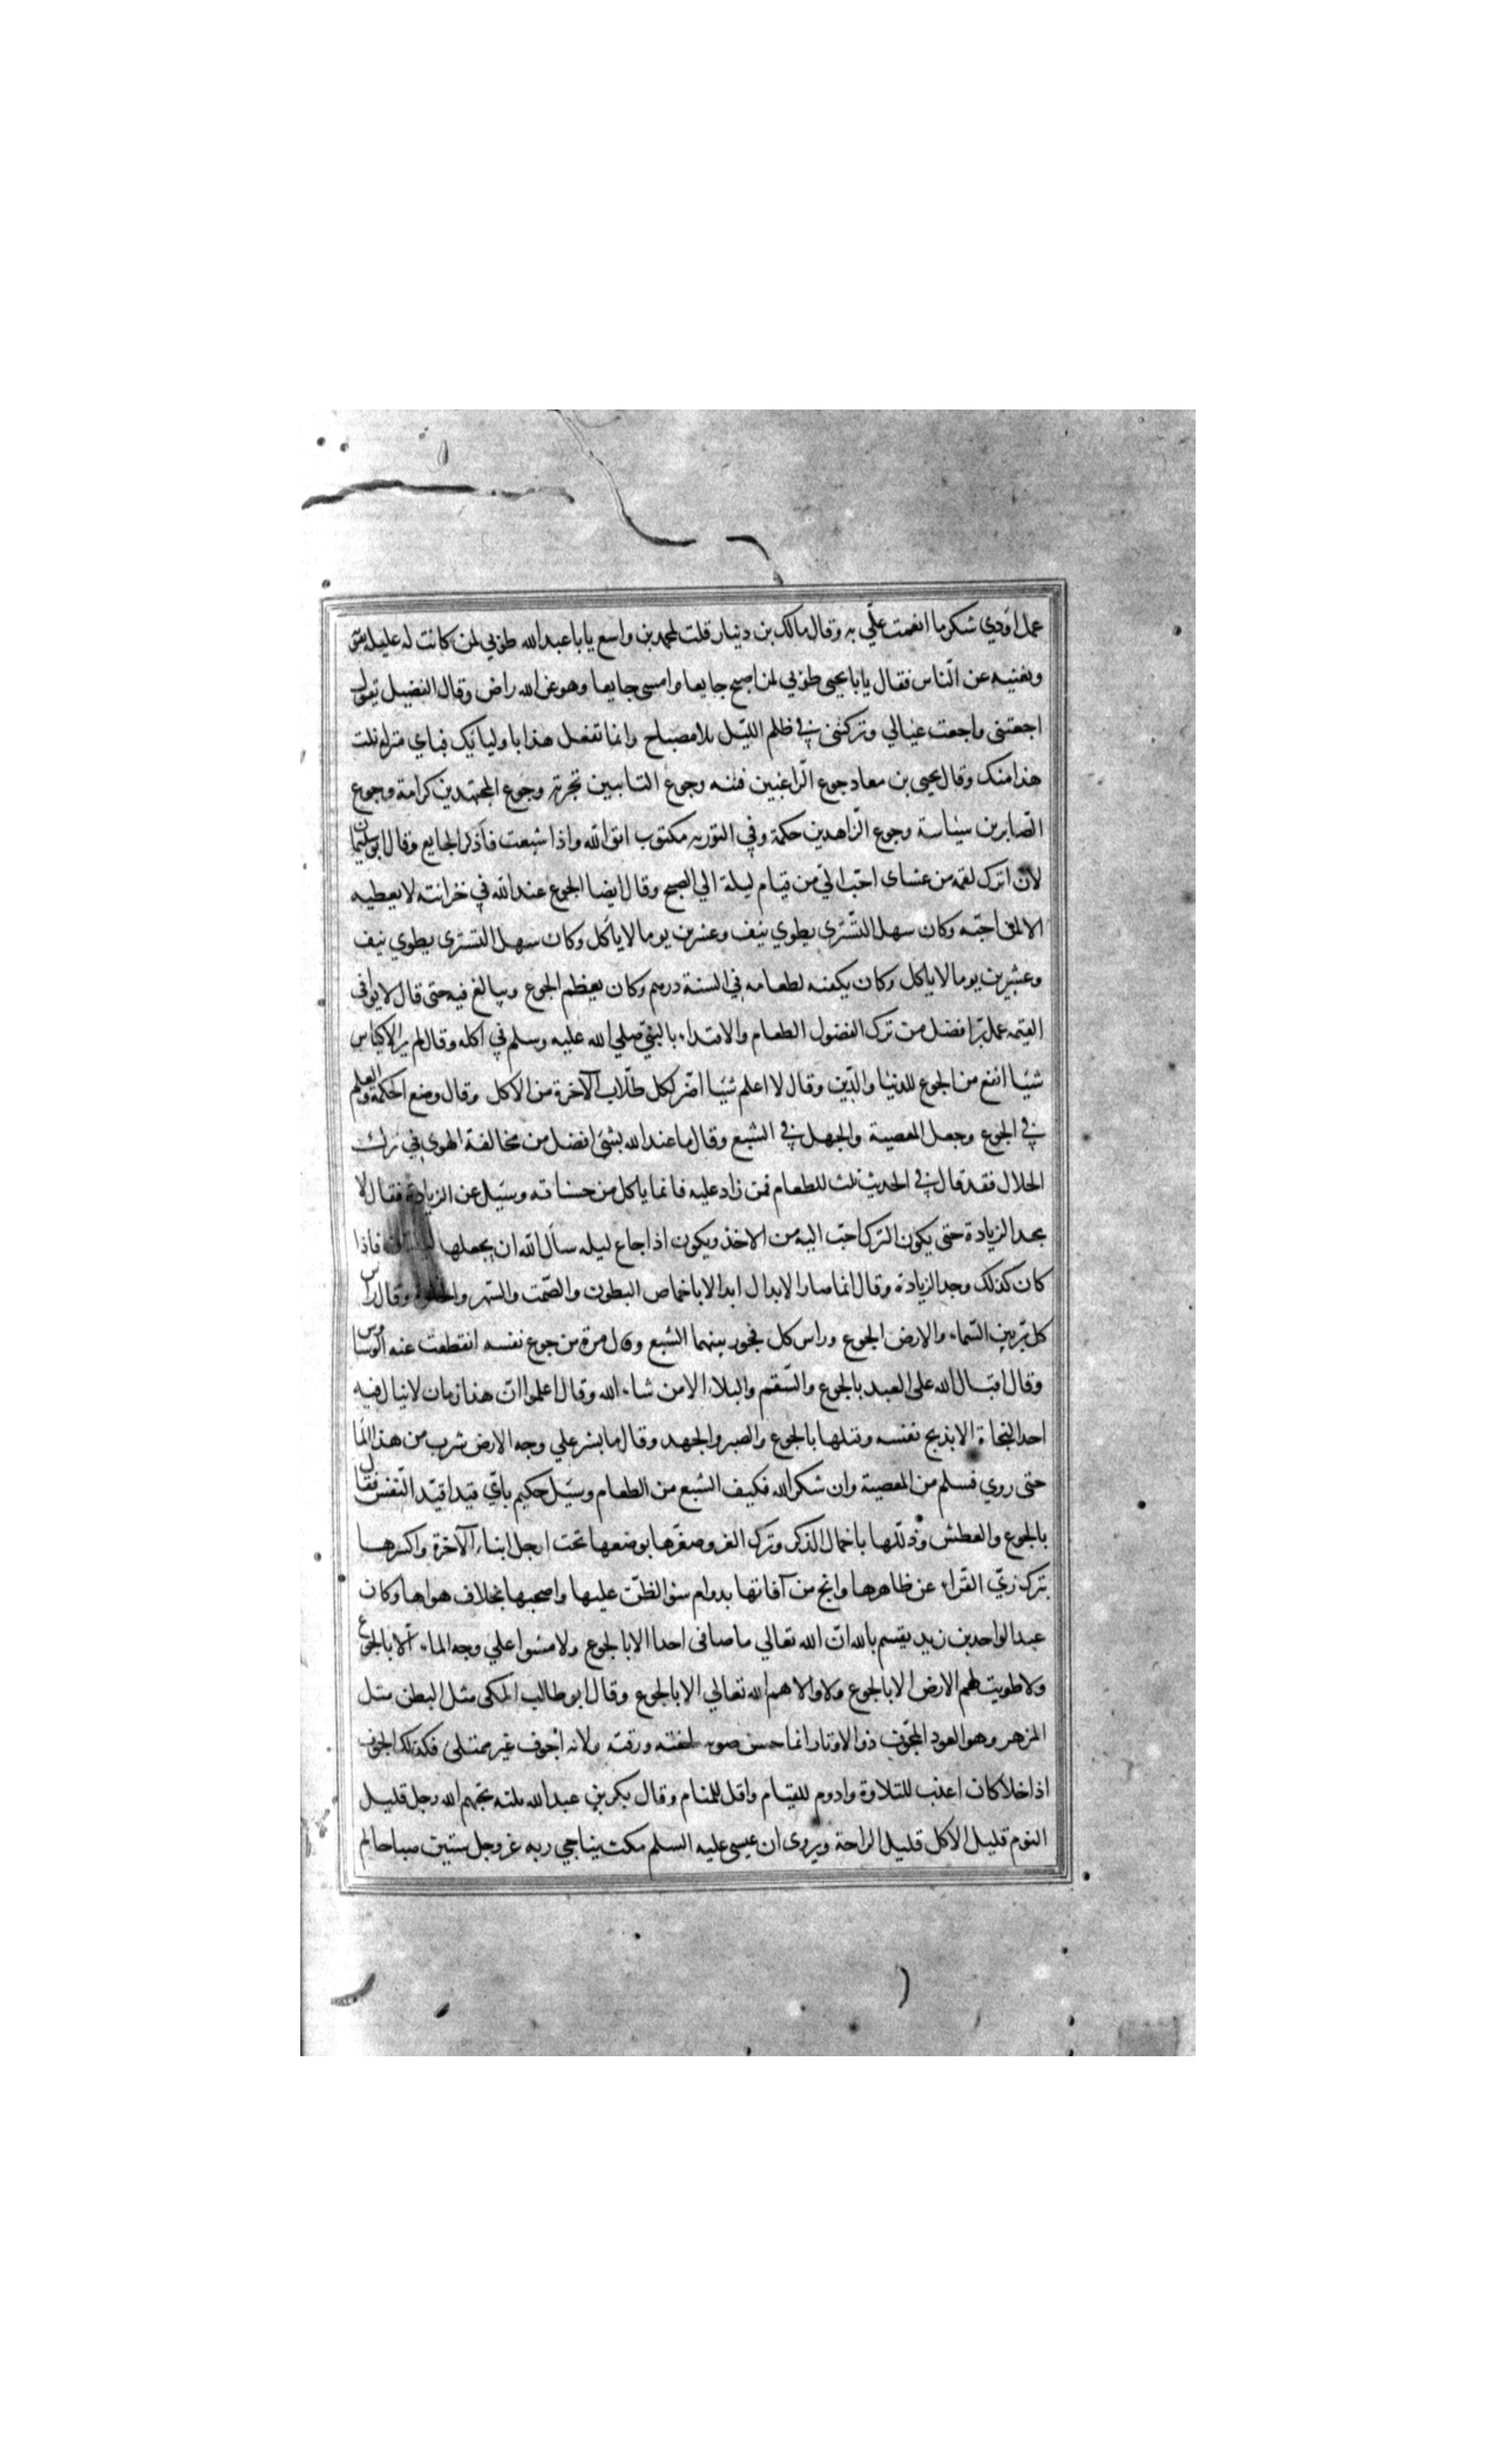 عمل اؤدي شكر ما انعمت علّي به وقال مالك بن دينار قلت لمحمد بن واسع يابا عبد الله طوبي لمن كانت له غليله تقوته
ويغنيه عن النّاس فقال يابا يحيى طوبي لمن اصبح جايعا وامسى جايعا وهو عن الله راض وقال الفضيل يقول
اجعتنى واجعت عيالي وتركتنى في ظلم الليّل بلا مصباح وانما تفعل هذا باوليائك فباي منزلة نلت
هذا منك وقال يحيى بن معاد جوع الرّاغبين فتنه وجوع التايبين تجربة وجوع المجتهدين كرامة وجوع
الصّابرين سياسة وجوع الزّاهدين حكمة وفي التوريه مكتوب اتق الله واذا شبعت فاذكر الجايع وقال ابو سليمان
لان اترك لقمه من عشاى احبّ الىّ من قيام ليلة الي الصبح وقال ايضا الجوع عند الله في خزانته لا يعطيه
الا لمن احبّه وكان سهل التّسترى يطوي نيف وعشرين يوما لا ياكل وكان سهل التسترى يطوي نيف
وعشرين يوما لا ياكل وكان يكفيه لطعامه في السنة درهم وكان يعظم الجوع ويبالغ فيه حتى قال لا يوافى
القيمه عمل برّ افضل من ترك الفضول الطعام والاقتداء بالنبيّ صلي الله عليه وسلم في اكله وقال لم ير الاكياس
شيئا انفع من الجوع للدنيا والدّين وقال لا اعلم شيئا اضّر لكل طلّاب الآخرة من الاكل وقال وضع الحكمة والعلم
في الجوع وجعل المعصية والجهل في الشبع وقال ما عند الله بشئ افضل من مخالفة الهوي في ترك
الحلال فقد قال في الحديث ثلث للطعام فمن زاد عليه فانما ياكل من حسناته وسيّل عن الزيادة فقال لا
يجد الزيادة حتى يكون الترك احبّ اليه من الاخذ ويكون اذا جاع ليله سأل الله ان يجعلها فاذا
كان كذلك وجد الزيادة وقال انما صار الابدال ابدالا باخماص البطون والصّمت والسّهر والخلوة وقال راس
كل برّ بين السّماء والارض الجوع وراس كل فجور بينهما الشبع وقال مرة من جوع نفسه انقطعت عنه الوساوس
وقال اقبال الله على العبد بالجوع والسّقم والبلاء الا من شاء الله وقال اعلموا انّ هذا زمان لا ينال فيه
احد النجاة الا بذبح نفسه وقتلها بالجوع والصبر والجهد وقال ما بشر علي وجه الارض شرب من هذا المآ
حتى روي فسلم من المعصية وان شكر الله فكيف الشبع من الطعام وسيّل حكيم بايّ قيد اقيّد النّفس فقال
بالجوع والعطش وذللّها باخمال الذكر وترك العز وصغرّها بوضعها تحت ارجل ابناء الآخرة واكسرها
بترك زيّ القّراء عن ظاهرها وانج من آفاتها بدوام سؤ الظنّ عليها واصحبها بخلاف هواها وكان
عبد الواحد بن زيد يقسم بالله انّ الله تعالي ما صافى احدا الا بالجوع ولا مشوا علي وجه الماء الّا بالجوع
ولا طويت لهم الارض الا بالجوع ولا والاهم الله تعالي الا بالجوع وقال ابو طالب المكى مثل البطن مثل
المزهر وهو العود المجّوف ذو الاوتار انما حسن صوته لخفته ورقته ولانه اجوف غير ممتلى فكذلك الجوف
اذا خلا كان اعذب للتلاوة وادوم للقيام واقل للمنام وقال بكر بن عبد الله ثلثه يحبّهم الله رجل قليل
النوم قليل الاكل قليل الراحة ويروى ان عيسى عليه السلم مكث يناجي ربه عز وجل ستين صباحا لم